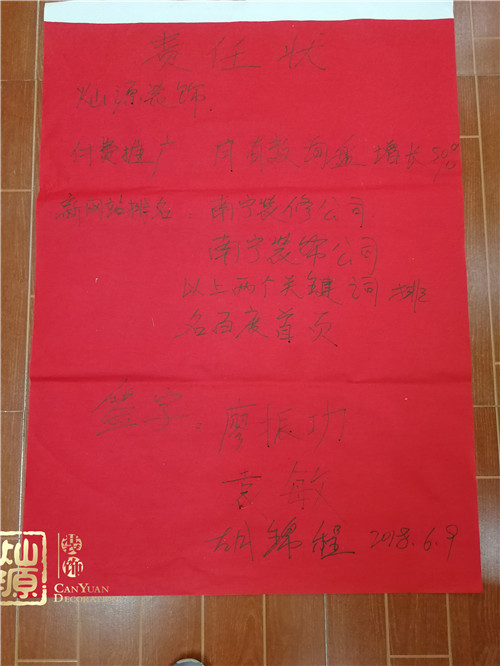 责任状
灿源装饰
付费推广 月有效询盘增长50%
新网站排名：南宁装修公司
南宁装饰公司
以上两个关键词排
名百度首页
签字：廖振功
言敏
胡锦程 2018.6.9
灿源
装饰
CANYUAN
DECORATION